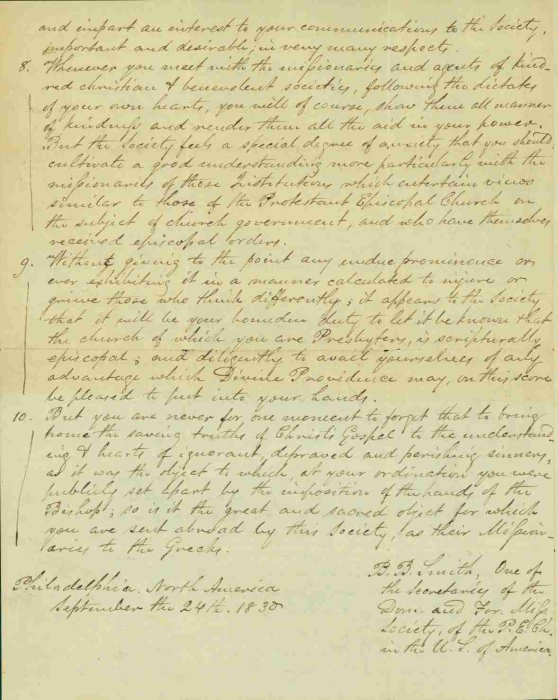 and impart an interest to your communications to the Society,
important and desirable, in very many respects.
8. Whenever you meet with the missionaries and agents of kind-
red christian & benevolent societies, following the dictates
of your own hearts, you will of course, show them all manner
of kindness and render them all the aid in your power.
But the Society feels a special degree of anxiety that you should
cultivate a good understanding more particularly with the
missionaries of those Institutions which entertain views
similar to those of the Protestant Episcopal Church on
the subject of church government, and who have themselves
received episcopal orders.
9. Without giving to the point any undue prominence or
ever exhibiting it in a manner calculated to injure or
grieve those who think differently; it appears to the Society
that it will be your bounden duty to let it be known that
the church of which you are Presbyters, is scripturally
episcopal; and diligently to avail yourselves of any
advantage which Divine Providence may, on this score
be pleased to put into your hands.
10. But you are never for one moment to forget that to bring
home the saving truths of Christ's Gospel to the understand-
ing & hearts of ignorant, depraved and perishing sinners,
as it was the object to which, at your ordination you were
publicly set apart by the imposition of the hands of the
Bishop; so is it the great and sacred object for which
you are sent abroad by this Society, as their Mission-
aries to the Greeks.
Philadelphia, North America
September the 24th. 1830
B. B. Smith, One of
the Secretaries of the
Dom. and For. Miss.
Society, of the P. E. Ch.
in the U. S. of America.